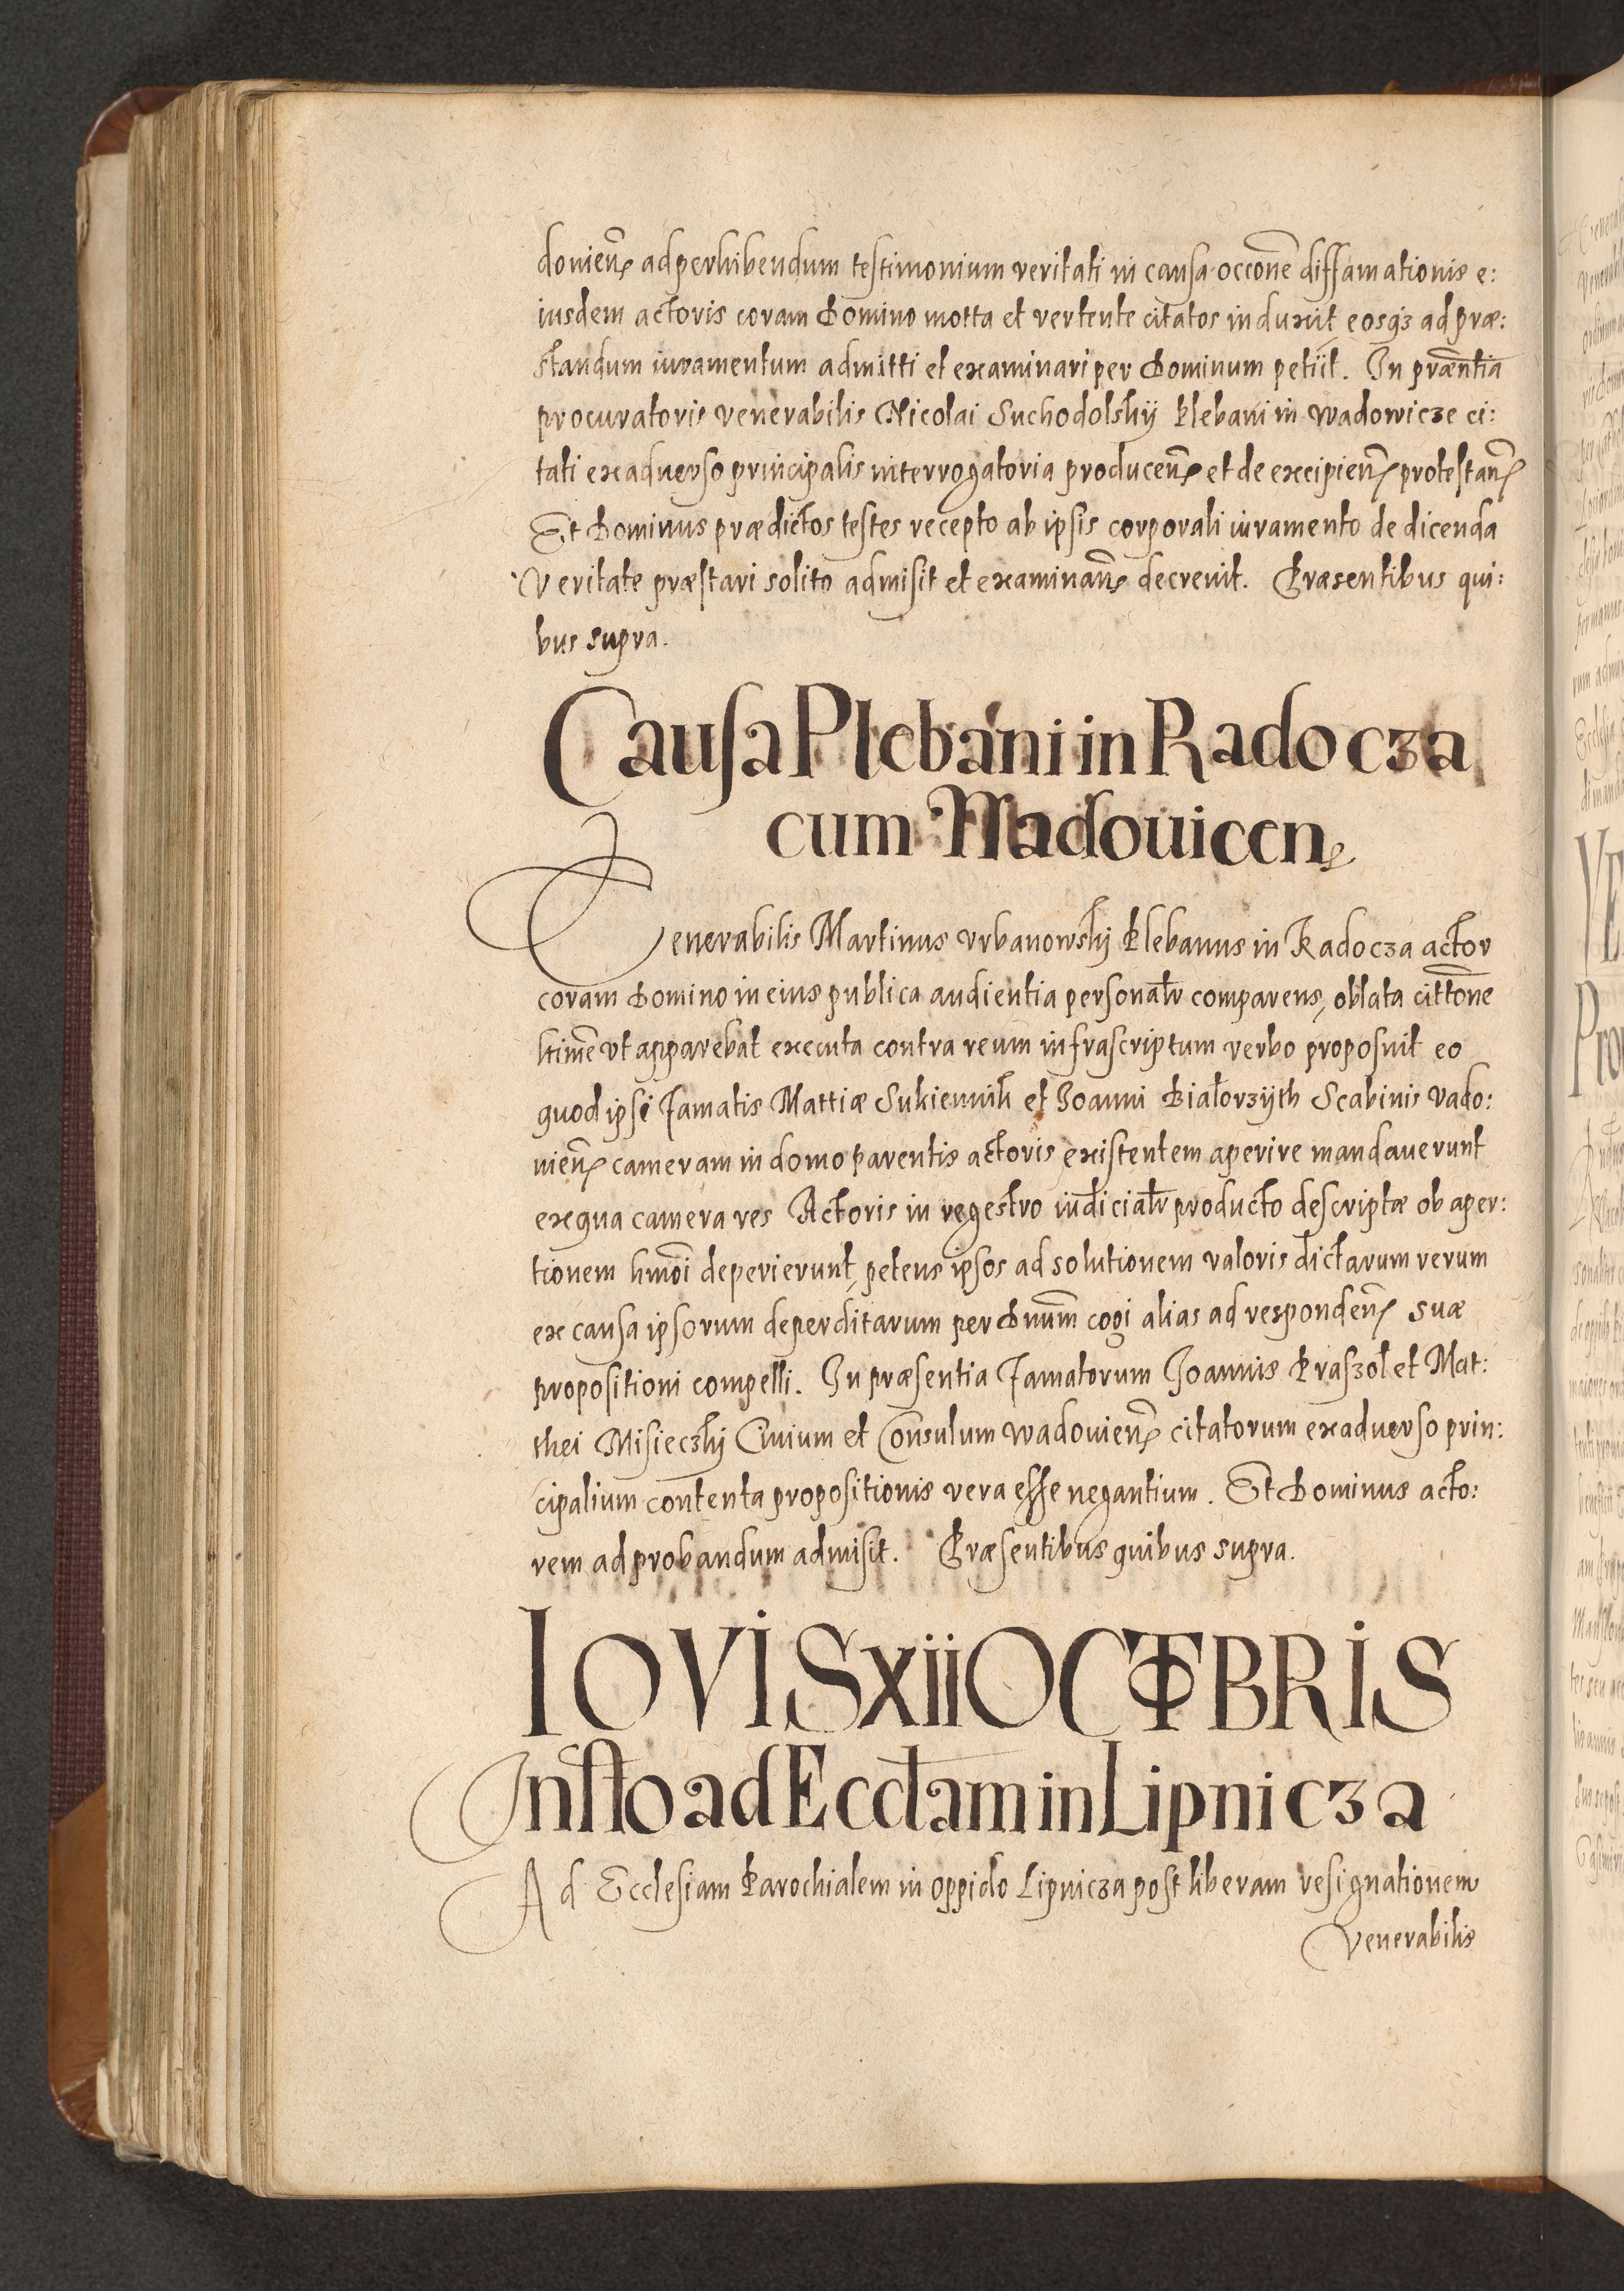 douien̄ ad perhibendum testimonium veritati in causa occōne diffamationis e:
iusdem actoris coram Domino motta et vertente citatos induxit eosqз ad præ:
standum iuramentum admitti et examinari per Dominum petiit. In præn̄tia
procuratoris venerabilis Nicolai Suchodolskÿ Plebani in Wadowicze ci:
tati ex aduerso principalis interrogatoria producen̄ et de excipien̄ protestan̄
Et Dominus prædictos testes recepto ab ipsis corporali iuramento de dicenda
Veritate præstari solito admisit et examinan̄ decreuit. Præsentibus qui:
bus supra.
Causa Plebani in Radocza
cum Wadouicen
Venerabilis Martinus Vrbanowskij Plebanus in Radocza actor
coram Domino in eius publica audientia personalr comparens, oblata cittōne
ltime vt apparebat executa contra reum infrascriptum verbo proposuit eo
quod ipsi famatis Mattiæ Sukiennik et Joanni Białorzÿth Scabinis Vado:
uien̄ cameram in domo parentis actoris existentem aperire mandauerunt
ex qua camera res Actoris in regestro iudicialr producto descriptæ ob aper:
tionem hmōi deperierunt, petens ipsos ad solutionem valoris dictarum rerum
ex causa ipsorum deperditarum per Dnum̄ cogi alias ad responden̄ suæ
propositioni compelli. In præsentia famatorum Joannis Praszol et Mat:
thei Misieczkj Ciuium et Consulum Wadouien̄ citatorum ex aduerso prin:
cipalium contenta propositionis vera esse negantium. Et Dominus acto:
rem ad probandum admisit. Præsentibus quibus supra.
IOVIS xii OCTOBRIS
Insto ad Ecclam in Lipnicza
Ad Ecclesiam Parochialem in oppido Lipnicza post liberam resignationem
Venerabilis